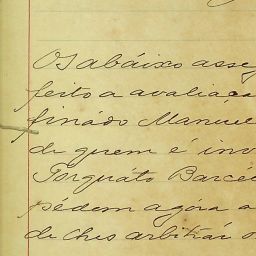 Os abáixo asse
feito a avaliáca
fináds Manuel
de quem é inv
Torquáto Barcé
pédem agóra a
de lhes arbitrár o